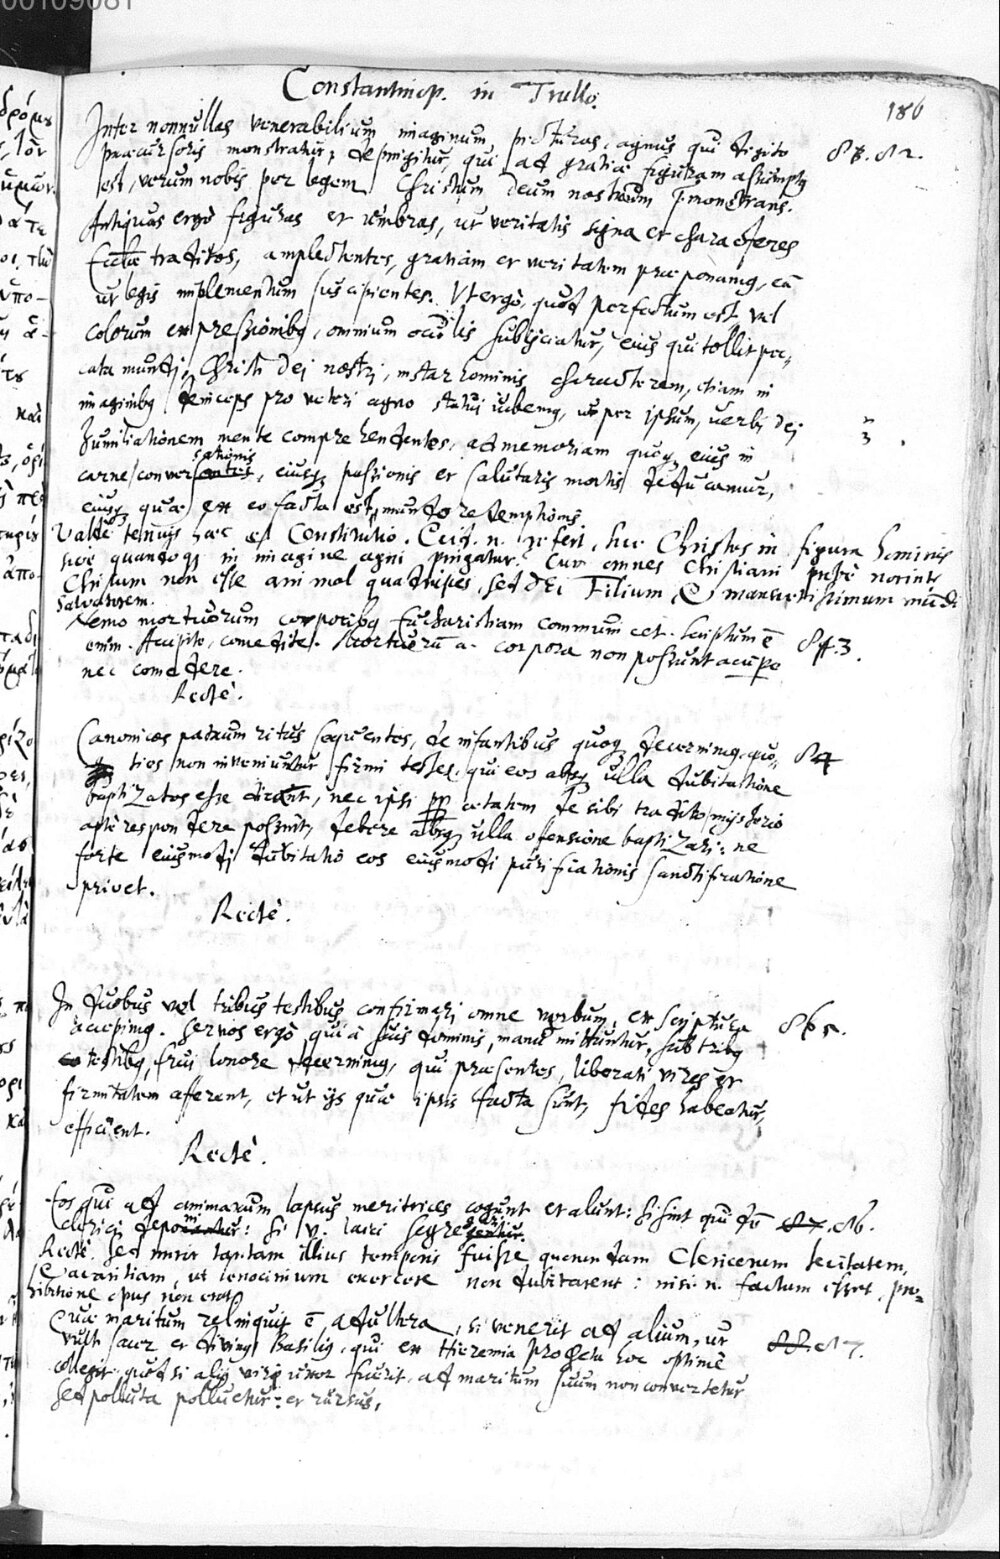 00109081
Constantinop. in Trullo.
186
Inter nonnullas venerabilium imaginum picturas, agnus qui digito 82.
praecursoris monstratur, depingitur, qui ad gratiae figuram assumptus
est, verum nobis per legem Christum deum nostrum praemonstrans.
Antiquas ergo figuras et umbras, ut veritatis signa et characteres
Ecclae traditos, amplectentes, gratiam et veritatem praeponimus, eam
ut legis implementum suscipientes. Ut ergo, quod perfectum est vel
colorum expressionibus, omnium oculis subijciatur, eius qui tollit pec-
cata mundi, Christi dei nostri, instar hominis characterem, etiam in
imaginibus deinceps pro veteri agno statui iubemus, ut per ipsum, verbi dei
humiliationem mente comprehendentes, ad memoriam quoque eius in
carne conversationis, eiusque passionis et salutaris mortis deducamur,
eiusque quae ex eo facta est, mundo redemptionis
Valde tenuis haec est Constitutio. Quid n. refert, hic Christus in figura hominis
sive quandoque in imagine agni pingatur? Cum omnes Christiani probe norint
Christum non esse animal quadrupes, sed dei Filium, & mansuetissimum mundi
Salvatorem.
Nemo mortuorum corporibus Eucharistiam communicet. Scriptum ē 83.
enim. Accipite, comedite. Mortuorū a. corpora non possunt accipere
nec comedere.
Recte.
Canonicos patrum ritus sequentes, de infantibus quoque decernimus, quo- 84
ties non inveniuntur firmi testes, qui eos absque ulla dubitatione
baptizatos esse dicant, nec ipsi pp aetatem de sibi tradito mysterio
apte respondere possint, debere absque ulla offensione baptizari: ne
forte eiusmodi dubitatio eos eiusmodi purificationis sanctificatione
privet.
Recte.
In duobus vel tribus testibus confirmari omne verbum, ex scriptura 85.
accepimus. Servos ergo, qui a suis dominis, manu mittuntur, sub tribus
testibus, frui honore decernimus, qui praesentes, liberati vires et
firmitatem afferent, et ut ijs quae ipsis facta sunt, fides habeatur,
efficient.
Recte.
Eos qui ad animarum lapsus meretrices cogunt et alunt: si sint quidē 87. 86.
clerici deponi: si v. laici segregari.
Recte. Sed miror tantam illius temporis fuisse quorundam Clericorum
& avaritiam, ut lenocinium exercere non dubitarent: nisi n. factum esset, pro-
hibitione opus non erat
Quae maritum relinquit ē adultera, si venerit ad alium, ut 88. 87.
vult sacer et divinus Basilius, qui ex Hieremia propheta hoc optime
collegit, quod si alij viri uxor fuerit, ad maritum suum non convertetur
sed polluta polluetur: et rursus,